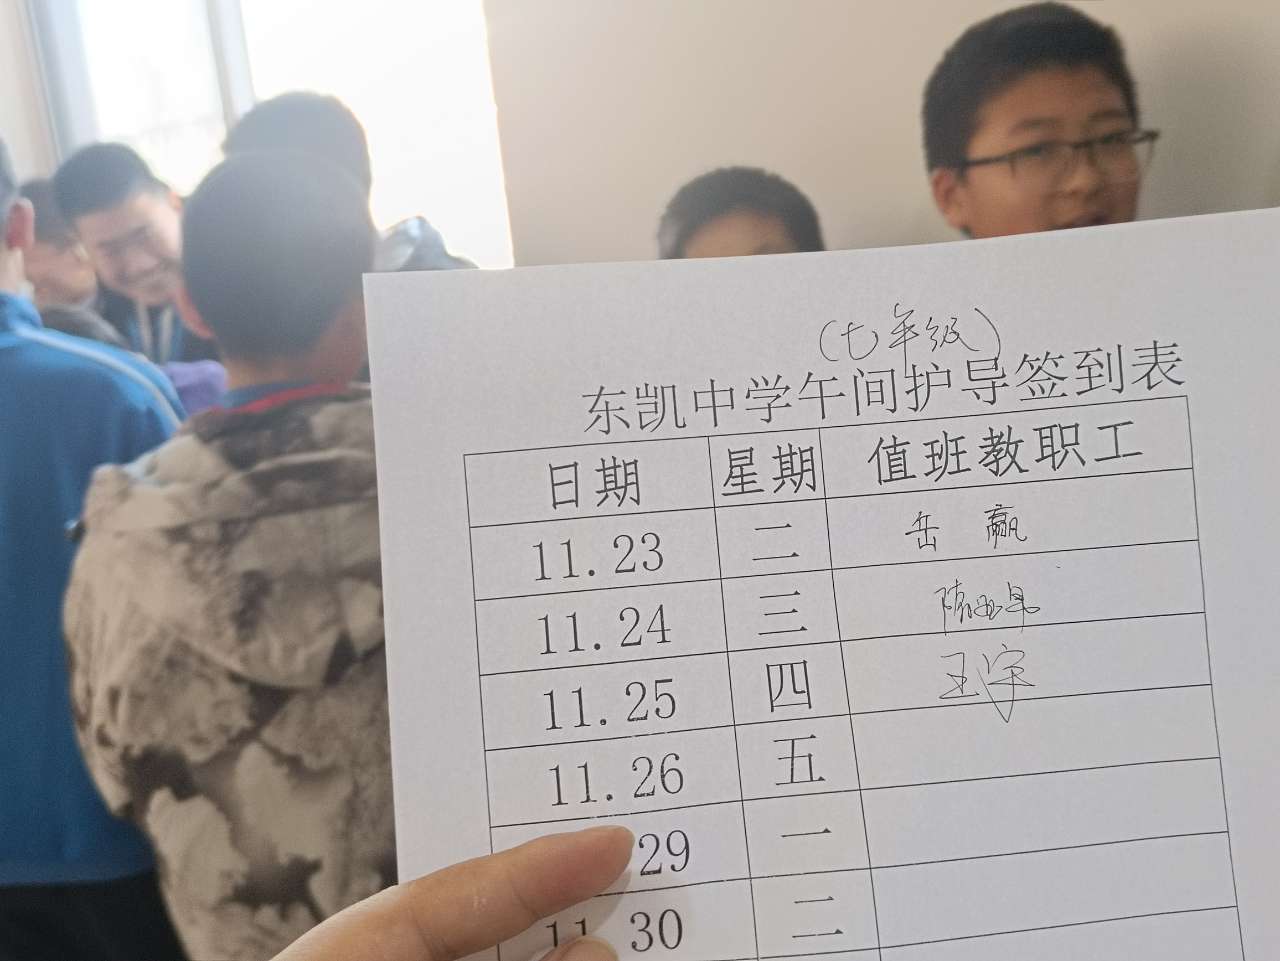 (七年级)
东凯中学午间护导签到表
日期 星期 值班教职工
11.23 二 岳赢
11.24 三
11.25 四 王宇
11.26 五
29 一
11.30 二